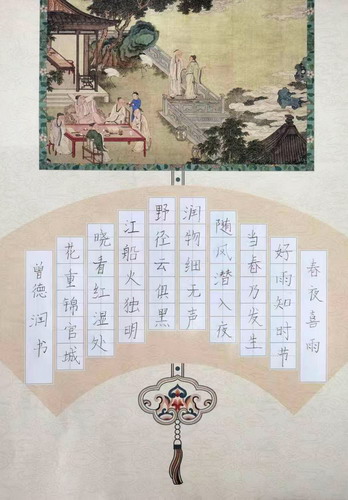 春夜喜雨
好雨知时节
当春乃发生
随风潜入夜
润物细无声
野径云俱黑
江船火独明
晓看红湿处
花重锦官城
曾德润书